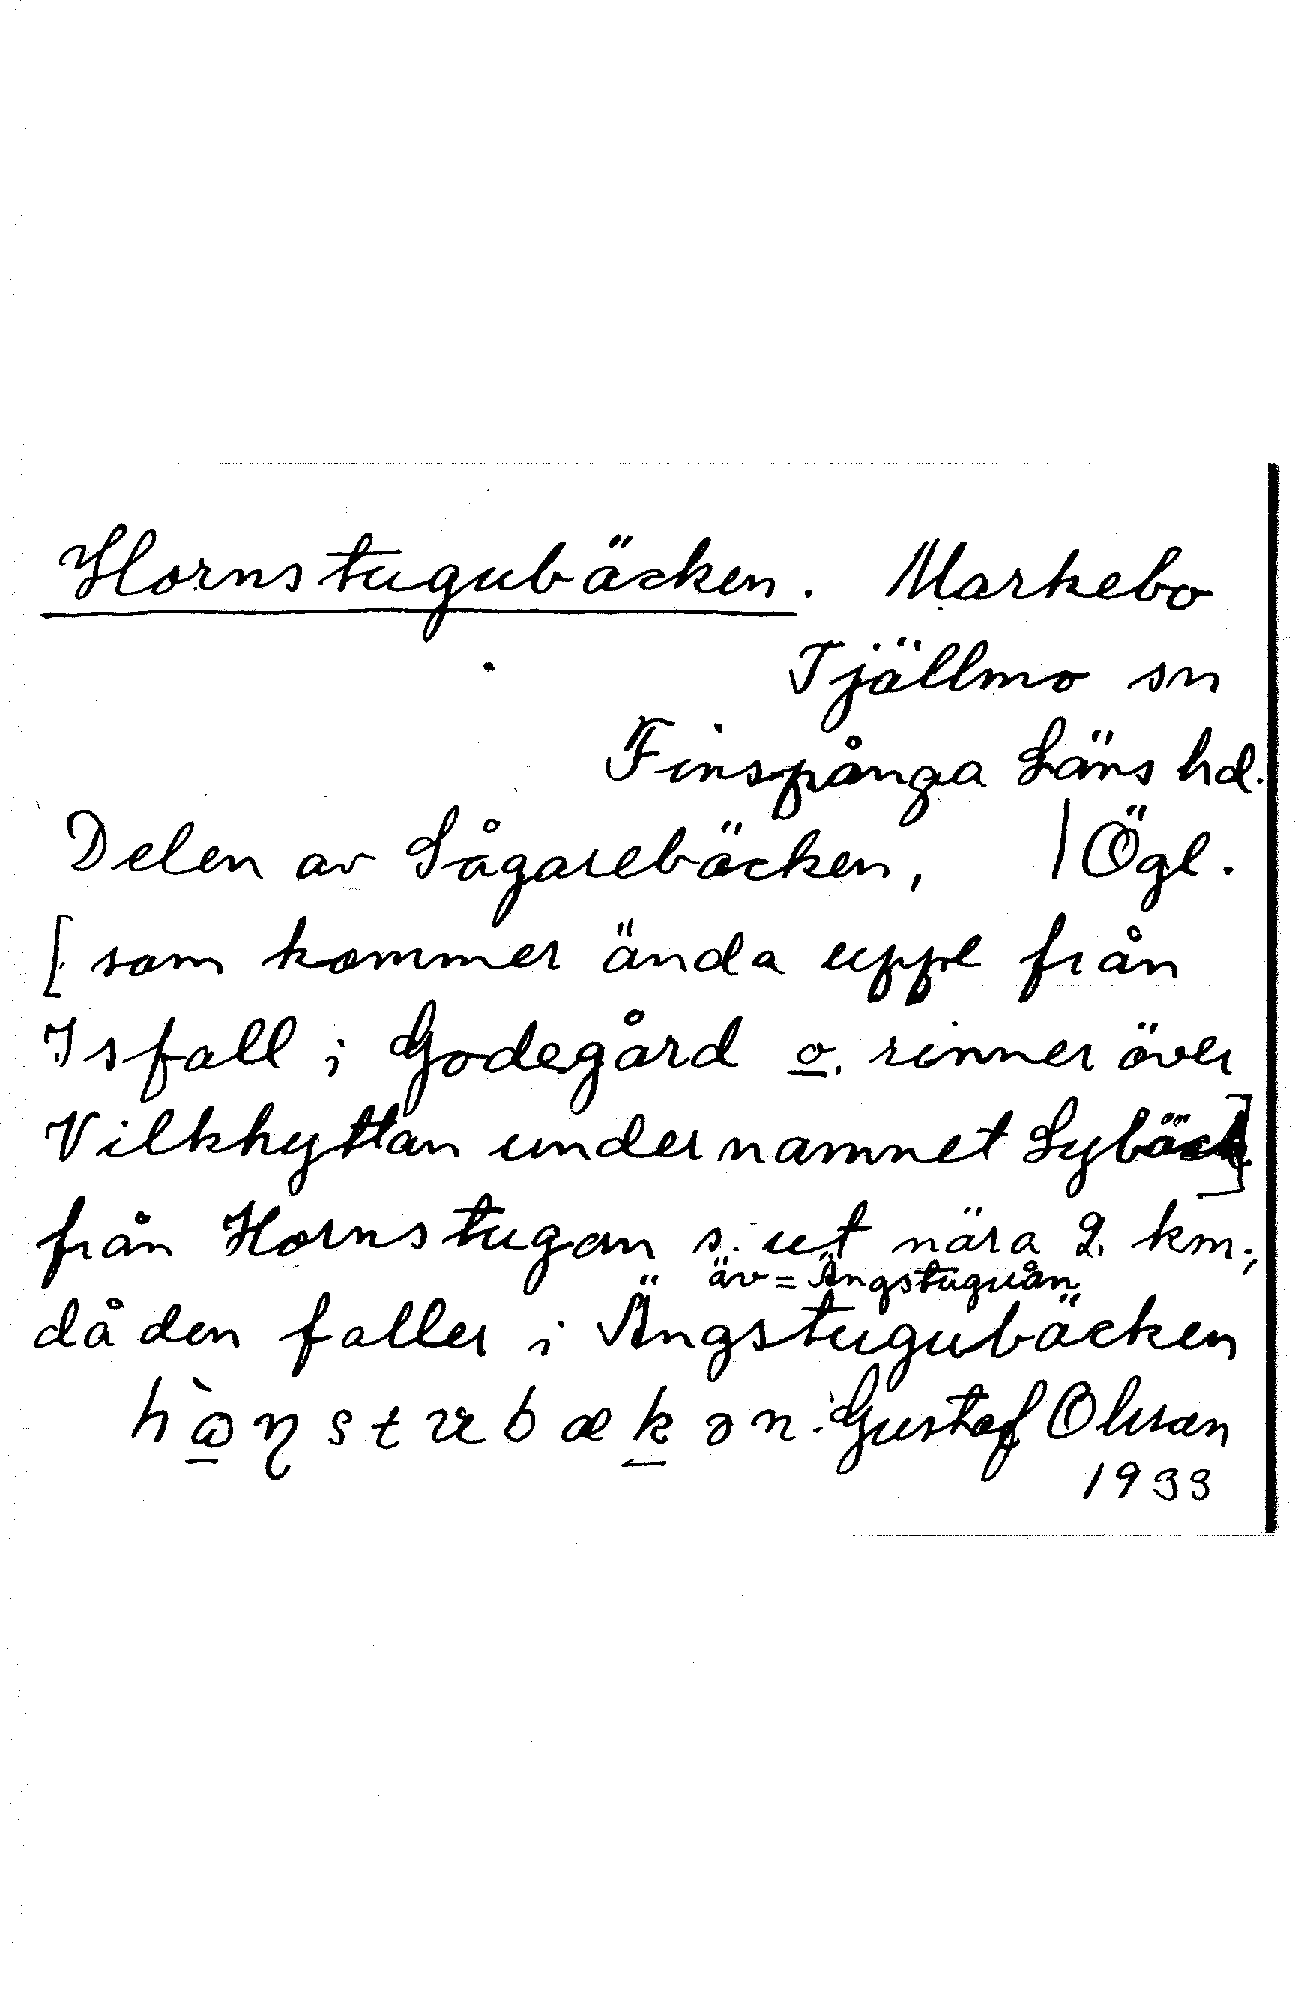 Hornstugubäcken. Markebo
Tjällmo sn
Finspånga Läns hd.
Delen av Sågarebäcken, | Ögl.
[ som kommer ända uppe från
Isfall i Godegård o. rinner över
Vilkhyttan under namnet Sybäck]
från Hornstugan s. ut nära 2 km;
äv = Ängstuguån
då den faller i Ängstugubäcken
Gustaf Olsson
1933